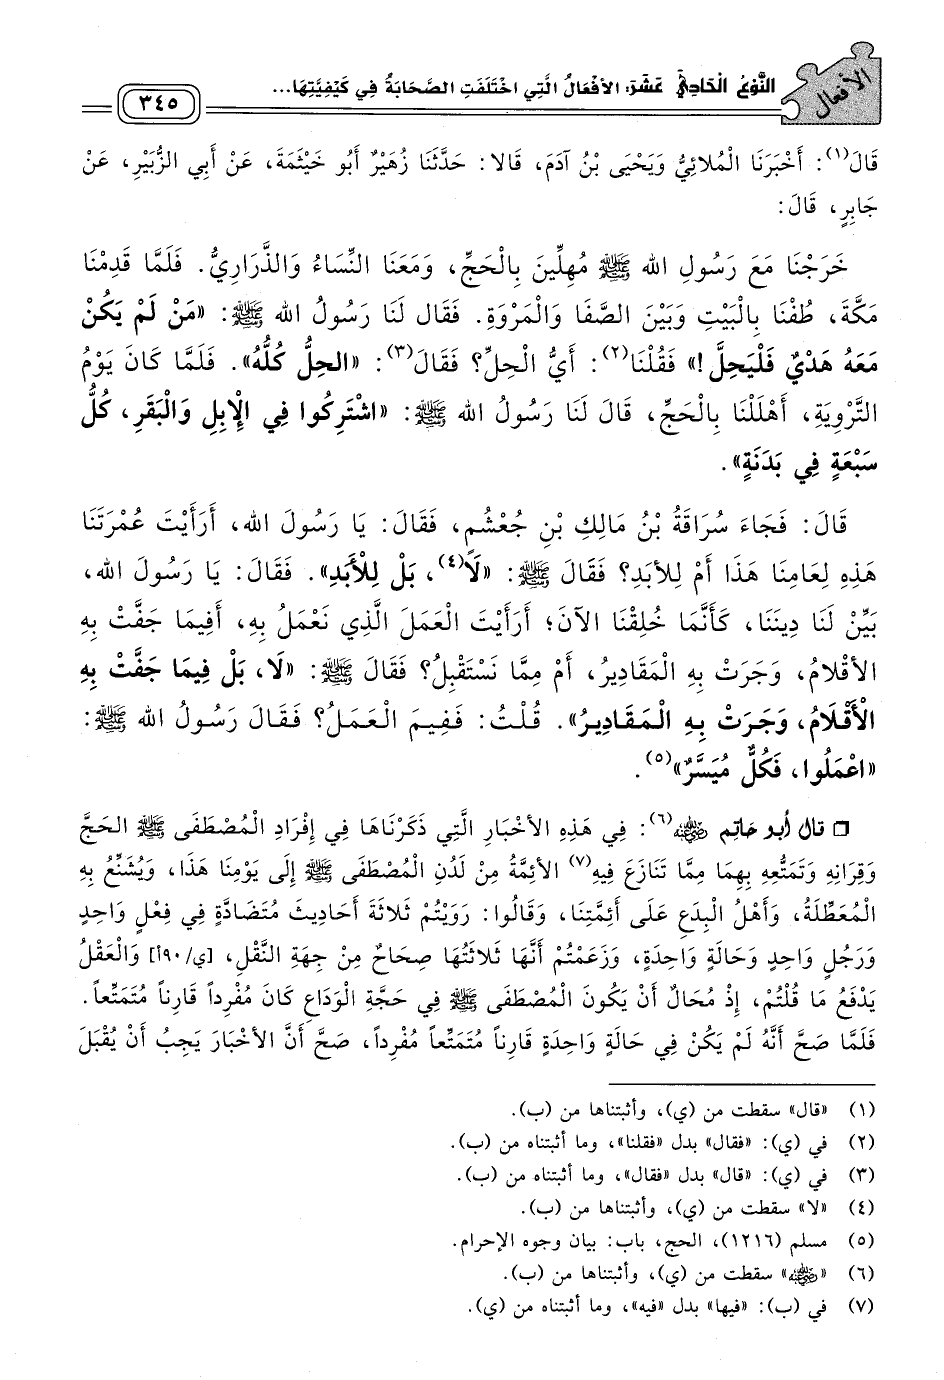 الأفعال
النَّوْعُ الْحَادِي عَشَرَ: الأَفْعَالُ الَّتِي اخْتَلَفَتِ الصَّحَابَةُ فِي كَيْفِيَّتِهَا...
٣٤٥
قَالَ(١): أَخْبَرَنَا الْمُلائِيُّ وَيَحْيَى بْنُ آدَمَ، قَالا: حَدَّثَنَا زُهَيْرٌ أَبُو خَيْثَمَةَ، عَنْ أَبِي الزُّبَيْرِ، عَنْ
جَابِرٍ، قَالَ:
خَرَجْنَا مَعَ رَسُولِ الله ﷺ مُهِلِّينَ بِالْحَجِّ، وَمَعَنَا النِّسَاءُ وَالذَّرَارِيُّ. فَلَمَّا قَدِمْنَا
مَكَّةَ، طُفْنَا بِالْبَيْتِ وَبَيْنَ الصَّفَا وَالْمَرْوَةِ. فَقَال لَنَا رَسُولُ الله ﷺ: «مَنْ لَمْ يَكُنْ
مَعَهُ هَدْيٌ فَلْيَحِلَّ!» فَقُلْنَا(٢): أَيُّ الْحِلِّ؟ فَقَالَ(٣): «الحِلُّ كُلُّهُ». فَلَمَّا كَانَ يَوْمُ
التَّرْوِيَةِ، أَهْلَلْنَا بِالْحَجِّ، قَالَ لَنَا رَسُولُ الله ﷺ: «اشْتَرِكُوا فِي الإِبِلِ وَالْبَقَرِ، كُلُّ
سَبْعَةٍ فِي بَدَنَةٍ».
قَالَ: فَجَاءَ سُرَاقَةُ بْنُ مَالِكِ بْنِ جُعْشُمٍ، فَقَالَ: يَا رَسُولَ الله، أَرَأَيْتَ عُمْرَتَنَا
هَذِهِ لِعَامِنَا هَذَا أَمْ لِلأَبَدِ؟ فَقَالَ ﷺ: «لَا(٤)، بَلْ لِلْأَبَدِ». فَقَالَ: يَا رَسُولَ الله،
بَيِّنْ لَنَا دِينَنَا، كَأَنَّمَا خُلِقْنَا الآنَ؛ أَرَأَيْتَ الْعَمَلَ الَّذِي نَعْمَلُ بِهِ، أَفِيمَا جَفَّتْ بِهِ
الأَقْلامُ، وَجَرَتْ بِهِ الْمَقَادِيرُ، أَمْ مِمَّا نَسْتَقْبِلُ؟ فَقَالَ ﷺ: «لَا، بَلْ فِيمَا جَفَّتْ بِهِ
الْأَقْلَامُ، وَجَرَتْ بِهِ الْمَقَادِيرُ». قُلْتُ: فَفِيمَ الْعَمَلُ؟ فَقَالَ رَسُولُ الله ﷺ:
«اعْمَلُوا، فَكُلٌّ مُيَسَّرٌ»(٥).
❑ قال أبو حاتم ﵁(٦): فِي هَذِهِ الأَخْبَارِ الَّتِي ذَكَرْنَاهَا فِي إِفْرَادِ الْمُصْطَفَى ﷺ الحَجَّ
وَقِرَانِهِ وَتَمَتُّعِهِ بِهِمَا مِمَّا تَنَازَعَ فِيهِ(٧) الأَئِمَّةُ مِنْ لَدُنِ الْمُصْطَفَى ﷺ إِلَى يَوْمِنَا هَذَا، وَيُشَنِّعُ بِهِ
الْمُعَطِّلَةُ، وَأَهْلُ الْبِدَعِ عَلَى أَئِمَّتِنَا، وَقَالُوا: رَوَيْتُمْ ثَلاثَةَ أَحَادِيثَ مُتَضَادَّةٍ فِي فِعْلٍ وَاحِدٍ
وَرَجُلٍ وَاحِدٍ وَحَالَةٍ وَاحِدَةٍ، وَزَعَمْتُمْ أَنَّهَا ثَلاثَتُهَا صِحَاحٌ مِنْ جِهَةِ النَّقْلِ، [ي/٩٠أ] وَالْعَقْلُ
يَدْفَعُ مَا قُلْتُمْ، إِذْ مُحَالٌ أَنْ يَكُونَ الْمُصْطَفَى ﷺ فِي حَجَّةِ الْوَدَاعِ كَانَ مُفْرِداً قَارِناً مُتَمَتِّعاً.
فَلَمَّا صَحَّ أَنَّهُ لَمْ يَكُنْ فِي حَالَةٍ وَاحِدَةٍ قَارِناً مُتَمَتِّعاً مُفْرِداً، صَحَّ أَنَّ الأَخْبَارَ يَجِبُ أَنْ يُقْبَلَ
(١) «قال» سقطت من (ي)، وأثبتناها من (ب).
(٢) في (ي): «فقال» بدل «فقلنا»، وما أثبتناه من (ب).
(٣) في (ي): «قال» بدل «فقال»، وما أثبتناه من (ب).
(٤) «لا» سقطت من (ي)، وأثبتناها من (ب).
(٥) مسلم (١٢١٦)، الحج، باب: بيان وجوه الإحرام.
(٦) «﵁» سقطت من (ي)، وأثبتناها من (ب).
(٧) في (ب): «فيها» بدل «فيه»، وما أثبتناه من (ي).